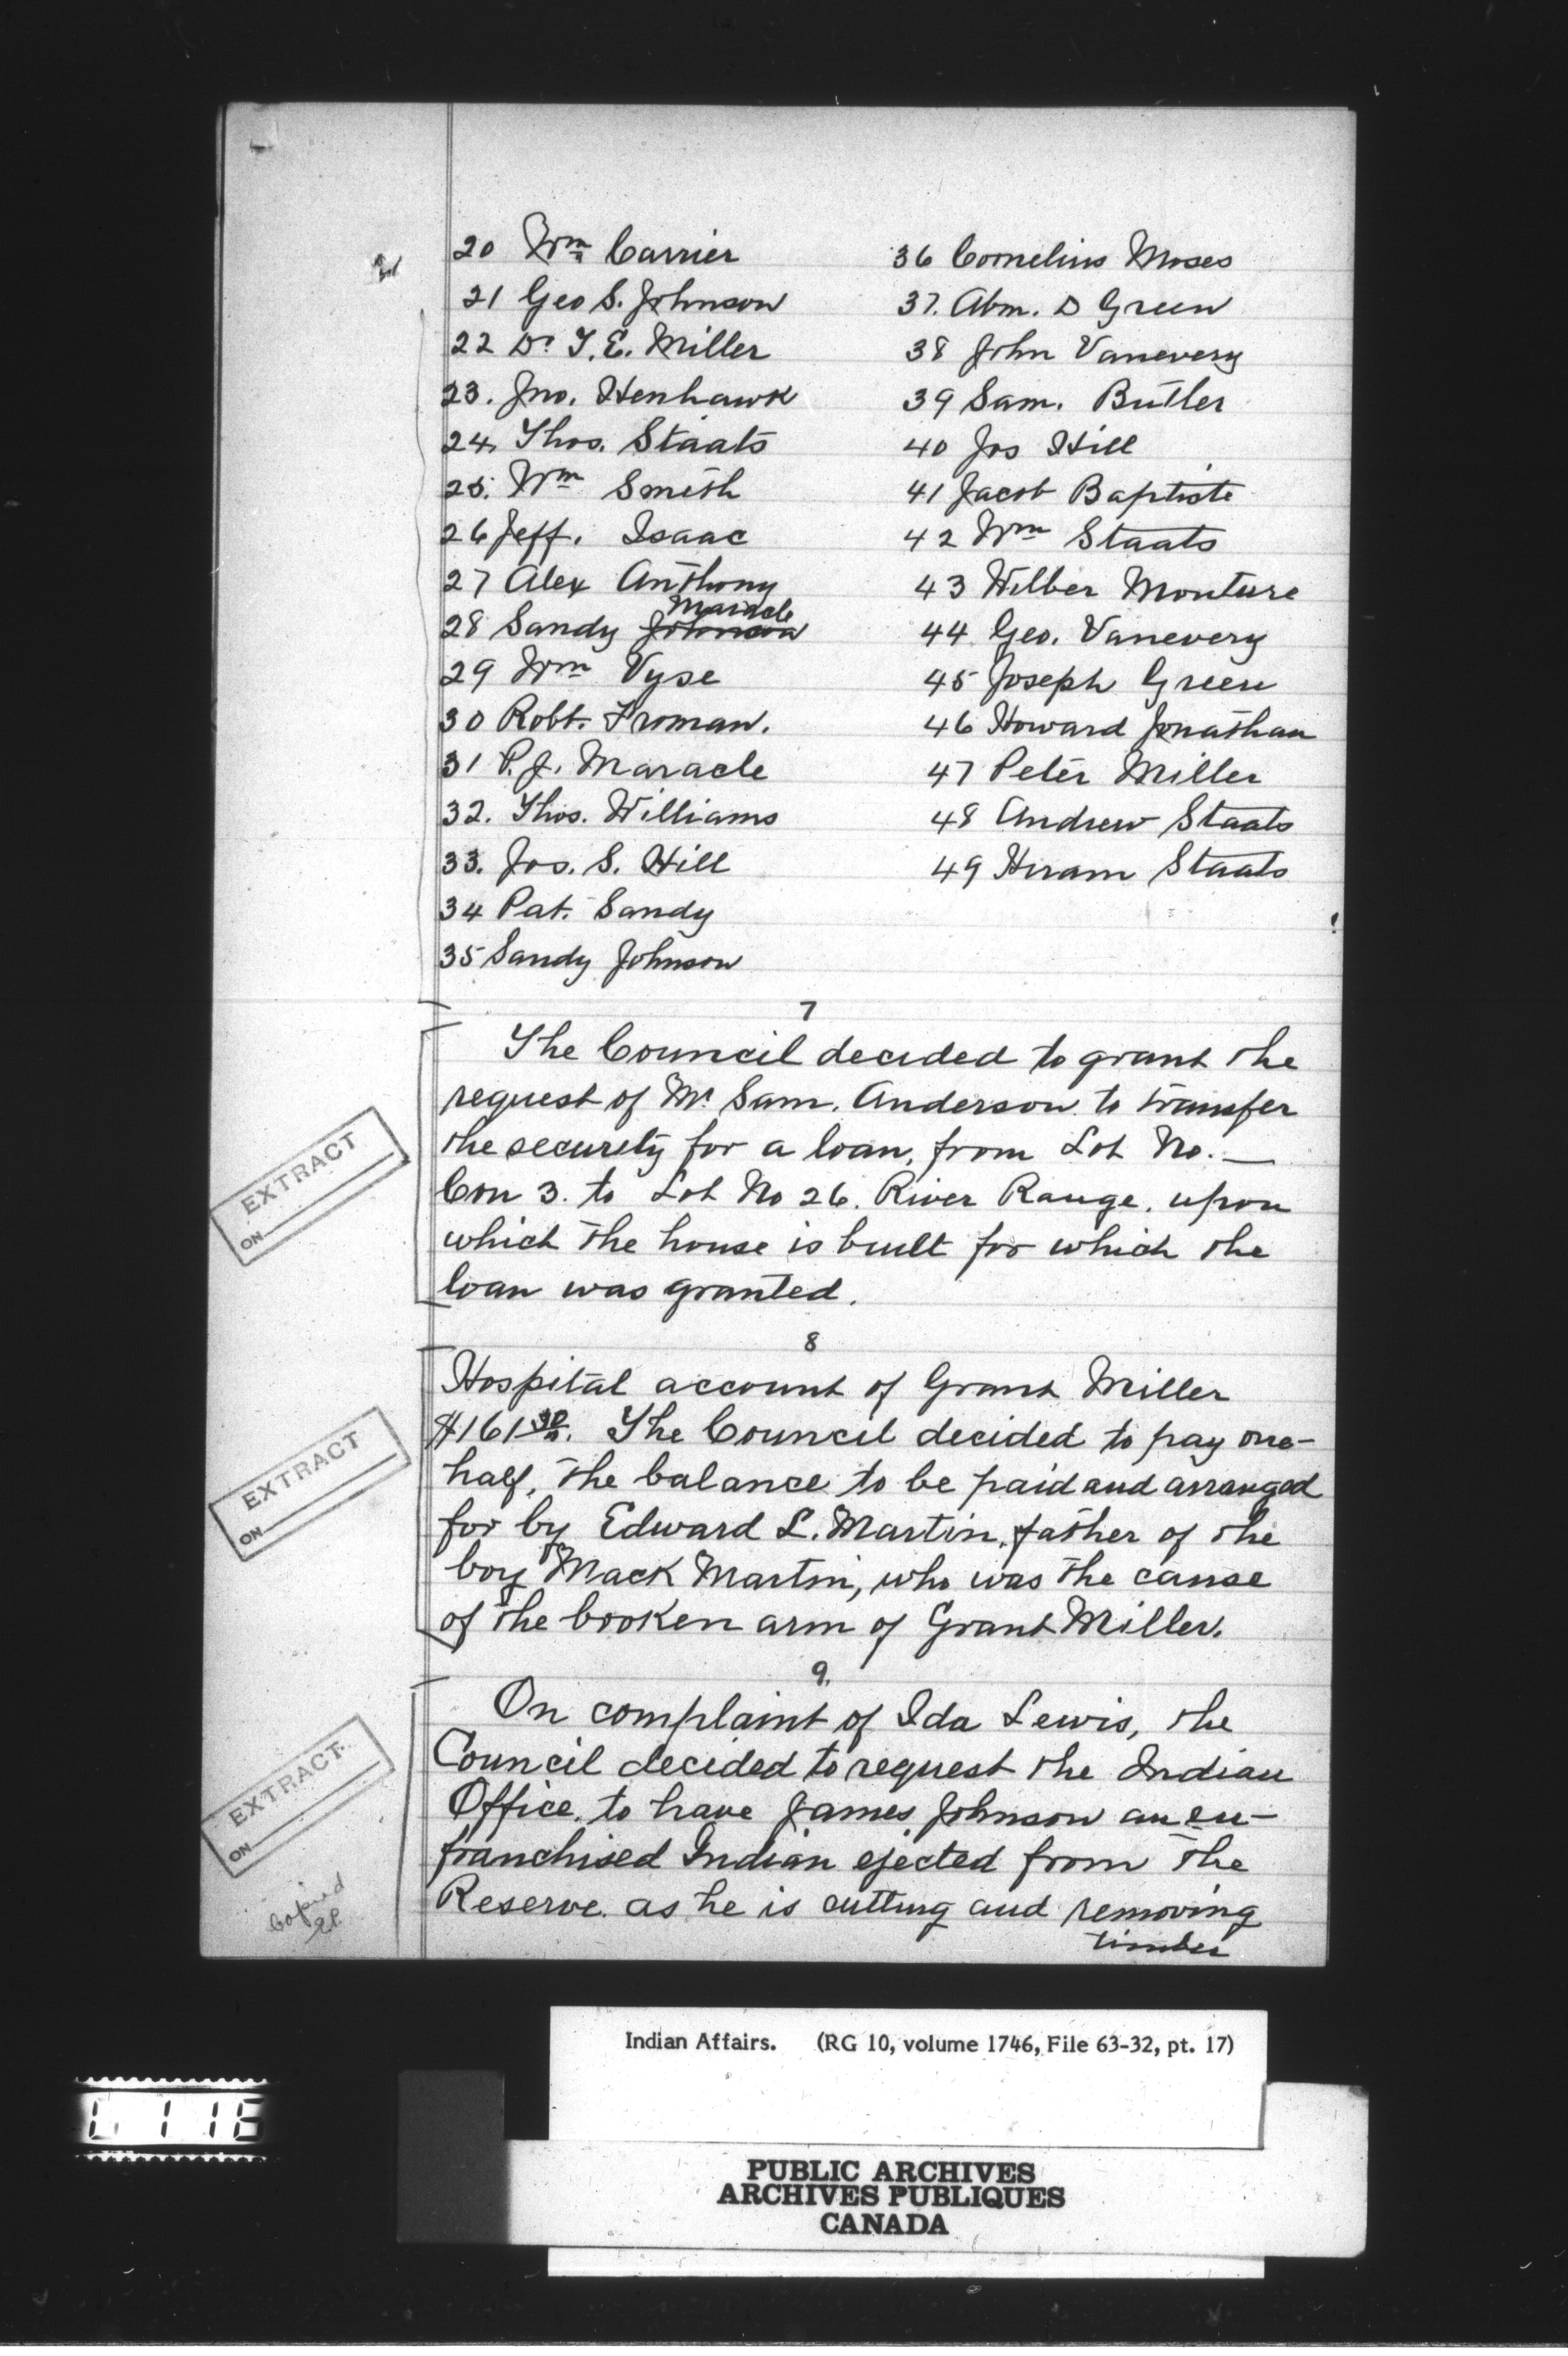 20 Wm Carrier
21 Geo S. Johnson
22 Dr T. E. Miller
23. Jno. Henhawk
24. Thos. Staats
25. Wm Smith
26 Jeff. Isaac
27 Alex Anthony
Maracle
28 Sandy Johnson
29 Wm Vyse
30 Robt. Froman.
31 P. J. Maracle
32. Thos. Williams
33. Jos. S. Hill
34 Pat. Sandy
35 Sandy Johnson
36 Cornelius Moses
37. Abm. D Green
38 John Vanevery
39 Sam. Butler
40 Jos Hill
41 Jacob Baptiste
42 Wm Staats
43 Wilber Monture
44 Geo. Vanevery
45 Joseph Green
46 Howard Jonathan
47 Peter Miller
48 Andrew Staats
49 Hiram Staats
7
The Council decided to grant the
request of Mr. Sam. Anderson to transfer
the security for a loan, from Lot No. —
Con 3. to Lot No 26. River Range, upon
which the house is built for which the
loan was granted.
EXTRACT
ON
8
Hospital account of Grant Miller
$161. The Council decided to pay one-
half, the balance to be paid and arranged
for by Edward L. Martin, father of the
boy Mack Martin, who was the cause
of the brooken arm of Grant Miller.
EXTRACT
ON
9.
On complaint of Ida Lewis, the
Council decided to request the Indian
Office, to have James Johnson an en-
franchised Indian ejected from the
Reserve as he is cutting and removing
timber
EXTRACT
ON
Copied
Indian Affairs. (RG 10, volume 1746, File 63-32, pt. 17)
PUBLIC ARCHIVES
ARCHIVES PUBLIQUES
CANADA